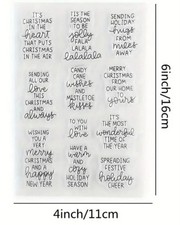 IT'S
CHRISTMAS
IN THE
heart
THAT PUTS
CHRISTMAS
IN THE AIR
'TIS THE
SEASON
TO BE
jolly
FALA
LALALA
lalalala
SENDING
HOLIDAY
hugs
FROM
MILES
AWAY
SENDING
ALL OUR
love
THIS
CHRISTMAS
and
always
CANDY
CANE
wishes
AND
MISTLETOE
kisses
MERRY
CHRISTMAS
FROM
OUR HOME
TO
yours
WISHING
YOU A
VERY
Merry
CHRISTMAS
AND A
happy
NEW YEAR
TO YOU
WITH
love
HAVE A
warm
and
cozy
HOLIDAY
SEASON
IT'S
THE MOST
wonderful
TIME OF
THE YEAR
SPREADING
FESTIVE
holiday
CHEER
6inch/16cm
4inch/11cm